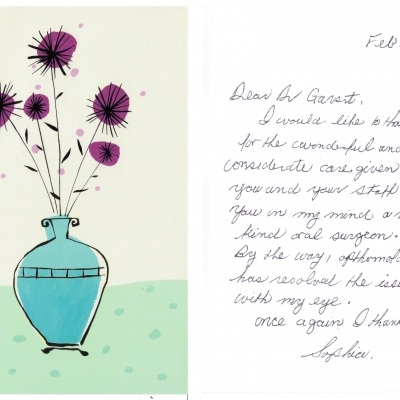 Feb
Dear Dr Garst,
I would like to tha
for the wonderful and
considerate care given
you and your staff
You in my mind a
kind oral surgeon.
By the way,
has resolved the iss
with my eye.
once again I than
Sophia.